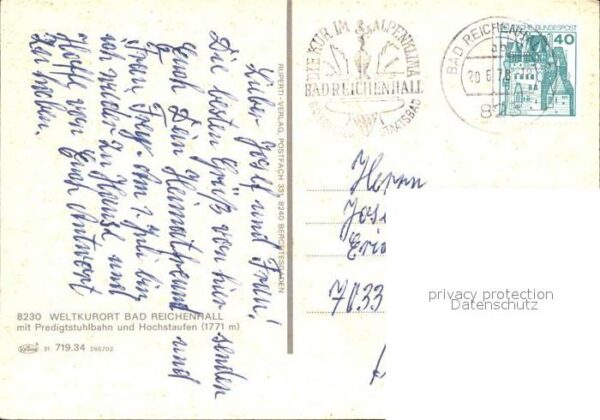 Lieber Josef und Frau!
Die besten Grüße von hier senden
Euch Dein Heimatfreund und
Frau Franz. Am 7. Juli bin
ich wieder zu Hause und
Hoffe von Euch Antwort
zu haben.
RUPERTI-VERLAG, POSTFACH 33, 8240 BERCHTESGADEN
8230 WELTKURORT BAD REICHENHALL
mit Predigtstuhlbahn und Hochstaufen (1771 m)
31 719.34 266702
DIE KUR IM ALPENKLIMA
BAD REICHENHALL
STAATSBAD
BAD REICHENH
20.6.78
DEUTSCHE BUNDESPOST
40
Herrn
Jose
7033
privacy protection
Datenschutz